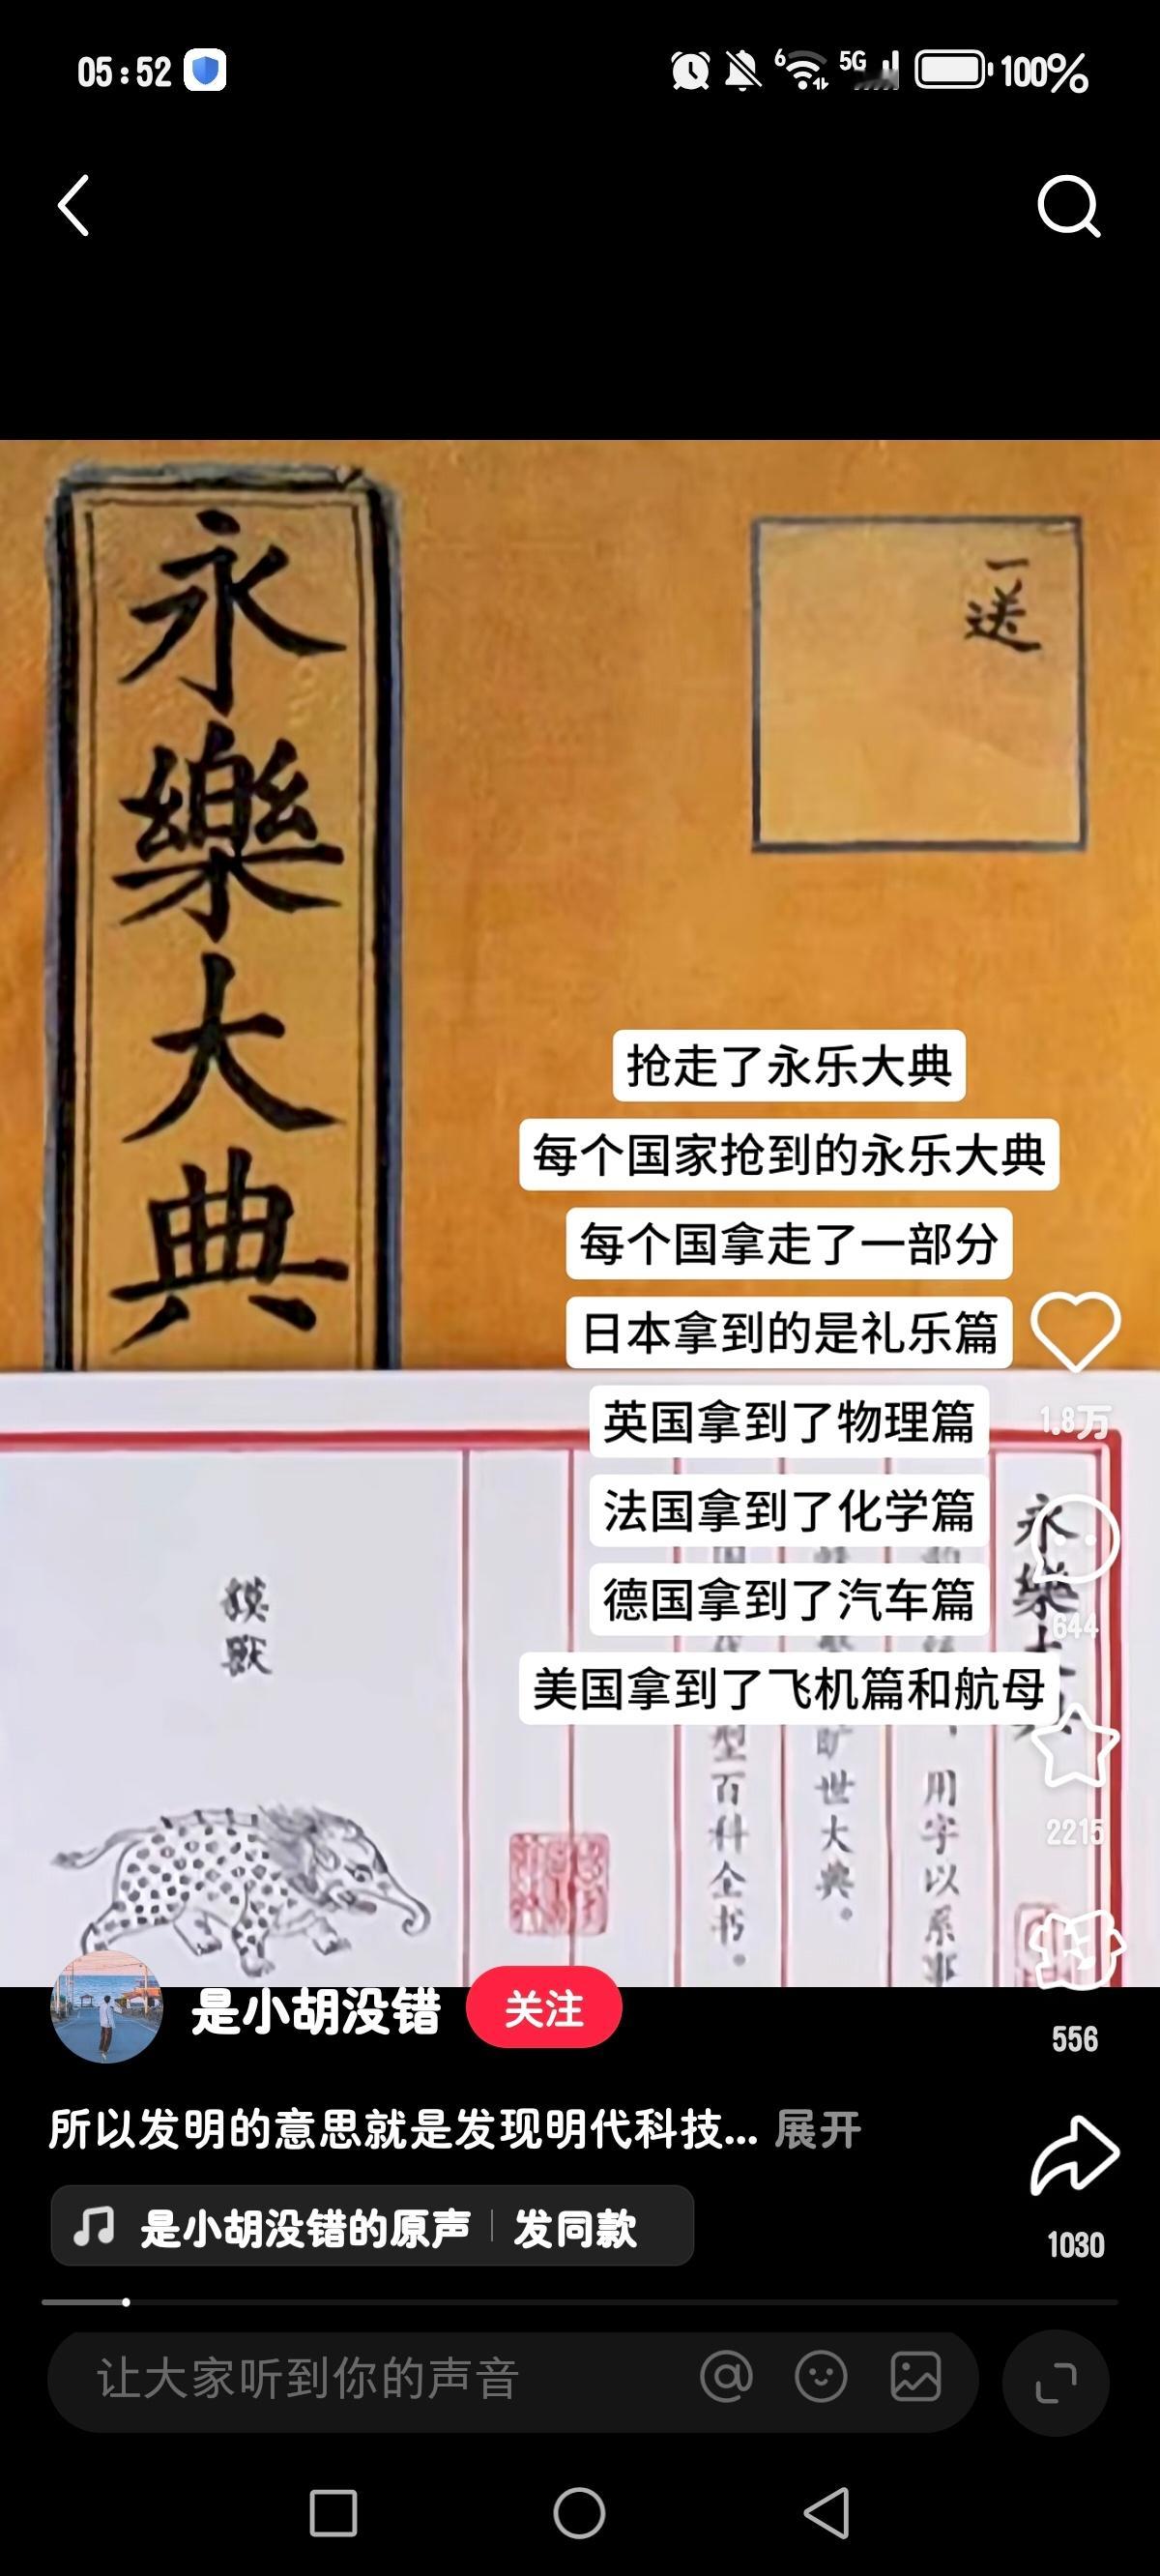 05:52
6
5G
100%
永樂大典
一送
抢走了永乐大典
每个国家抢到的永乐大典
每个国拿走了一部分
日本拿到的是礼乐篇
英国拿到了物理篇
法国拿到了化学篇
德国拿到了汽车篇
美国拿到了飞机篇和航母
1.8万
644
2215
556
1030
永樂
用字以系事
旷世大典。
型百科全书。
是小胡没错
关注
所以发明的意思就是发现明代科技... 展开
是小胡没错的原声
发同款
让大家听到你的声音